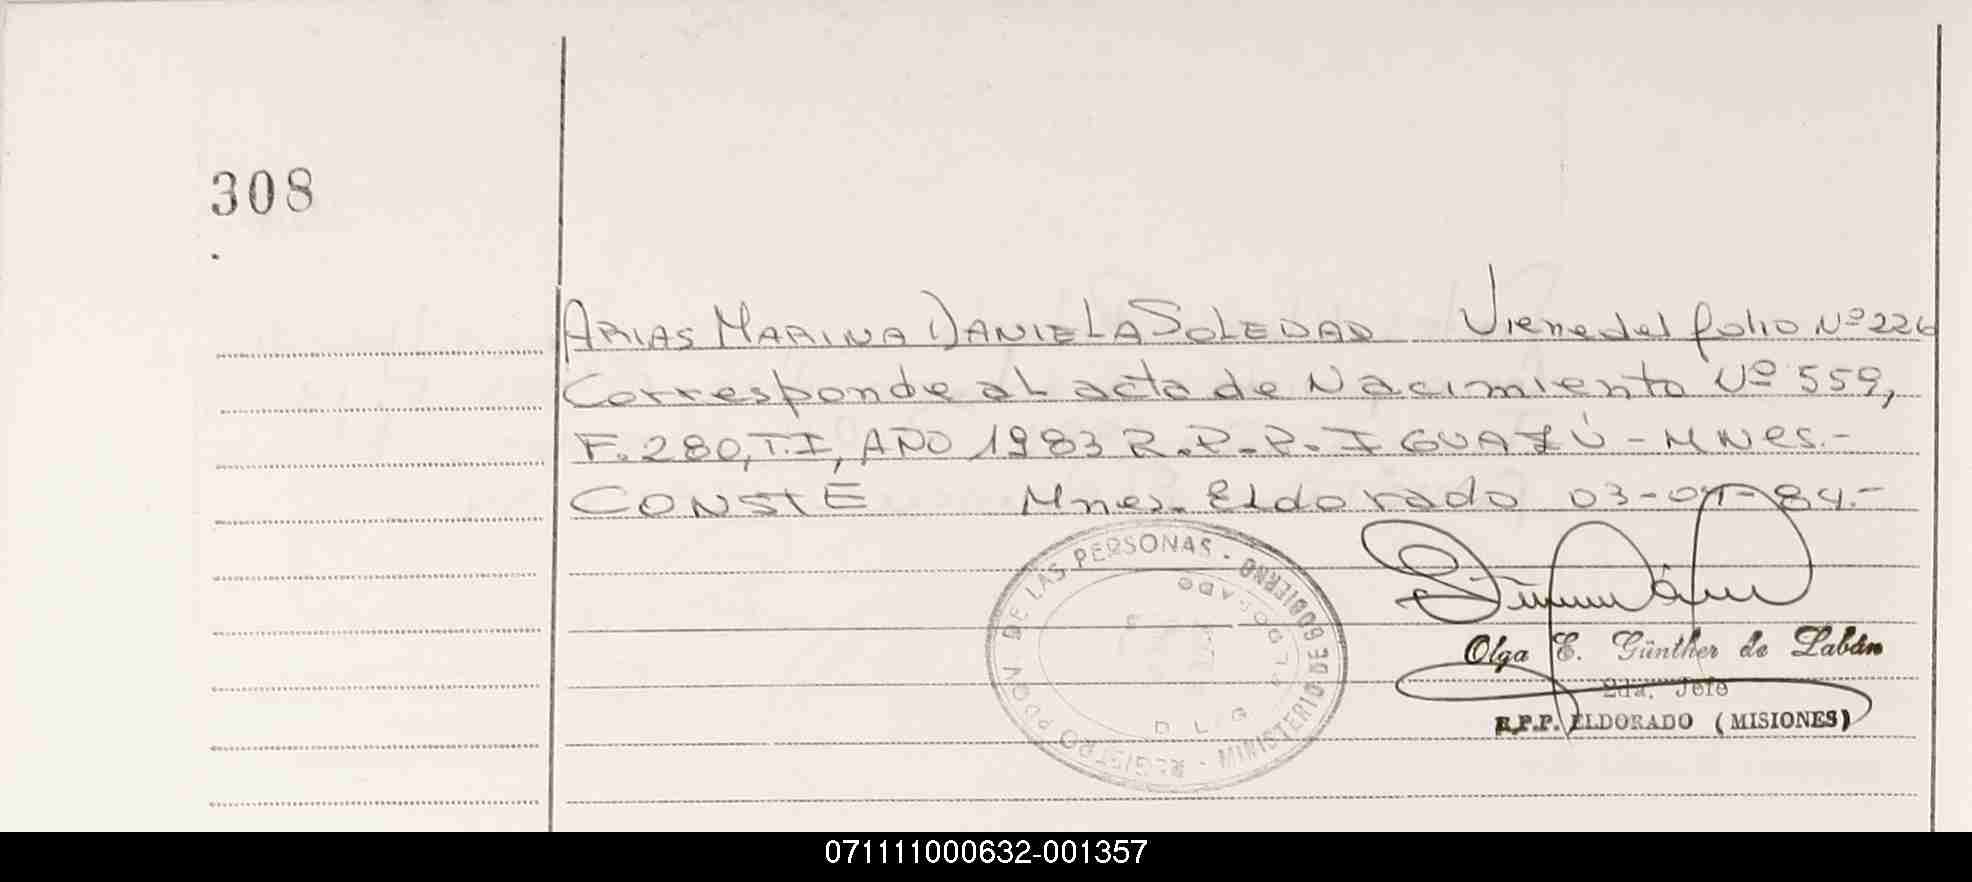 308
ARIAS MARINA DANIELA SOLEDAD Viene del folio Nº 226
Corresponde al acta de Nacimiento Nº 559,
F. 280, T. I, AÑO 1983 R.P.P. IGUAZÚ - MNes.-
CONSTE Mnes. Eldorado 03-01-84.-
REGISTRO PROV DE LAS PERSONAS - MINISTERIO DE GOBIERNO
ELDORADO
Olga E. Günther de Labán
2da. Jefe
R.P.P. ELDORADO (MISIONES)
071111000632-001357